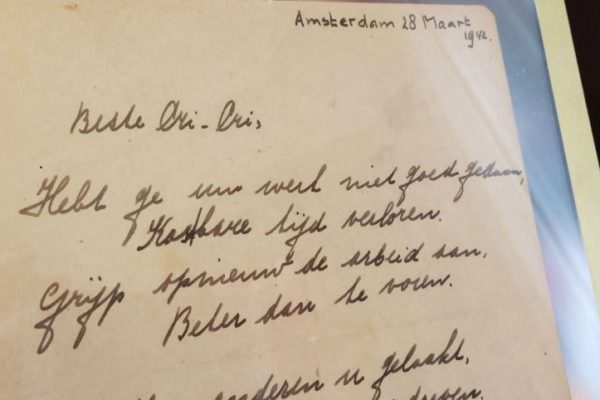 Amsterdam 28 Maart
1942.
Beste Cri-Cri,
Hebt ge uw werk niet goed gedaan,
Kostbare tijd verloren.
Grijp opnieuw de arbeid aan,
Beter dan te voren.
anderen u gelaakt,